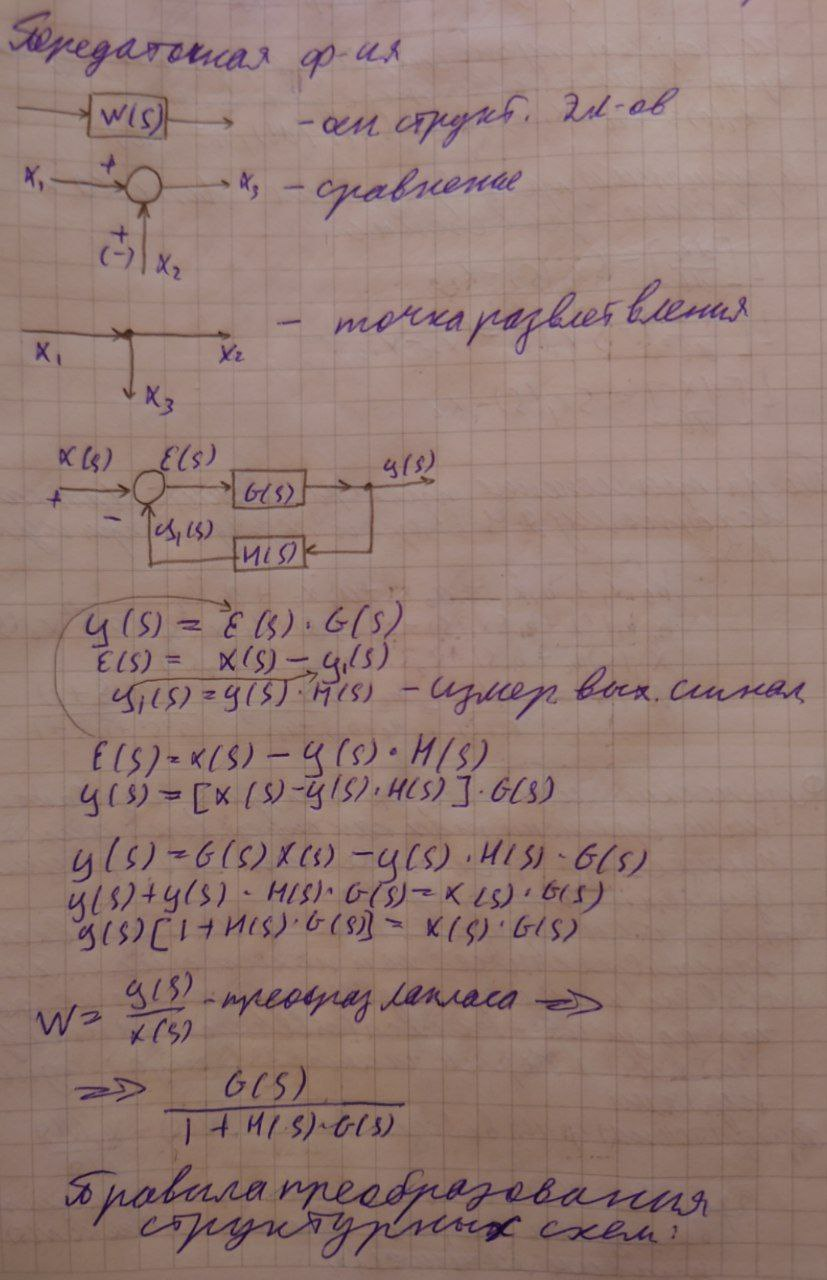 Передаточная ф-ия
W(s) - осн структ. эл-ов
x₁ + x₃ - сравнение
+
(-) x₂
- точка разветвления
x₁ x₂
x₃
x(s) ε(s) y(s)
+ G(s)
- y₁(s)
H(s)
y(s) = ε(s) · G(s)
ε(s) = x(s) - y₁(s)
y₁(s) = y(s) · H(s) - измер вых. сигнал
ε(s) = x(s) - y(s) · H(s)
y(s) = [x(s) - y(s) · H(s)] · G(s)
y(s) = G(s) x(s) - y(s) · H(s) · G(s)
y(s) + y(s) · H(s) · G(s) = x(s) · G(s)
y(s) [1 + H(s) · G(s)] = x(s) · G(s)
W = y(s) / x(s) - преобраз лапласа =>
=> G(s) / 1 + H(s) · G(s)
Правила преобразования
структурных схем: